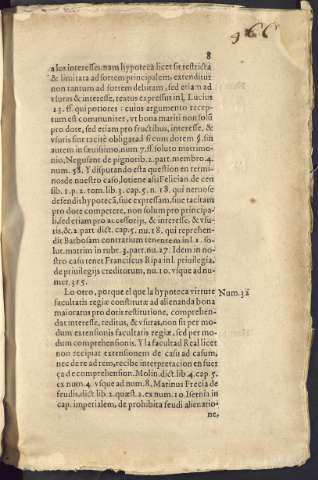 8
a los interesses: nam hypoteca licet sit restricta
& limitata ad sortem principalem, extenditur
non tantum ad sortem debitam, sed etiam ad
vsuras & interesse, textus expressus in l. Lucius
15. ff. qui potiores: cuius argumento recep-
tum est communiter, vt bona mariti non solũ
pro dote, sed etiam pro fructibus, interesse, &
vsuris sint tacitè obligata l. si cum dotem §. sin
autem in sæuissimo, num. 7. ff. soluto matrimo-
nio, Negusant. de pignorib. 2. part. membro 4.
num. 58. Y disputando esta question en termi-
nos de nuestro caso, lo tiene assi Felician. de cen
sib. 1. p. 2. tom. lib. 3. cap. 5. n. 18. qui neruose
defendit hypotecã, siue expressam, siue tacitam
pro dote competere, non solum pro principa-
li, sed etiam pro accessorijs, & interesse, & vsu-
ris, &c. 2. part. dict. cap. 5. nu. 18. qui reprehen-
dit Barbosam contrarium tenentem in l. 2. so-
lut. matrim. in rubr. 3. part. nu. 27. Idem in no-
stro casu tenet Franciscus Ripa in l. priuilegia,
de priuilegijs creditorum, nu. 10. vsque ad nu-
mer. 315.
Lo otro, porque el que la hypoteca virtute
Num. 32
facultatis regiæ constitutæ ad alienanda bona
maioratus pro dotis restitutione, comprehen-
dat interesse, reditus, & vsuras, non fit per mo-
dum extensionis facultatis regiæ, sed per mo-
dum comprehensionis. Y la facultad Real licet
non recipiat extensionem de casu ad casum,
nec de re ad rem, recibe interpretacion en fuer
ça de comprehension. Molin. dict. lib. 4. cap. 5.
ex num. 4. vsque ad num. 8. Marinus Frecia de
feudis, dict. lib. 2. quæst. 2. ex num. 10. Isernia in
cap. imperialem, de prohibita feudi alienatio-
ne,